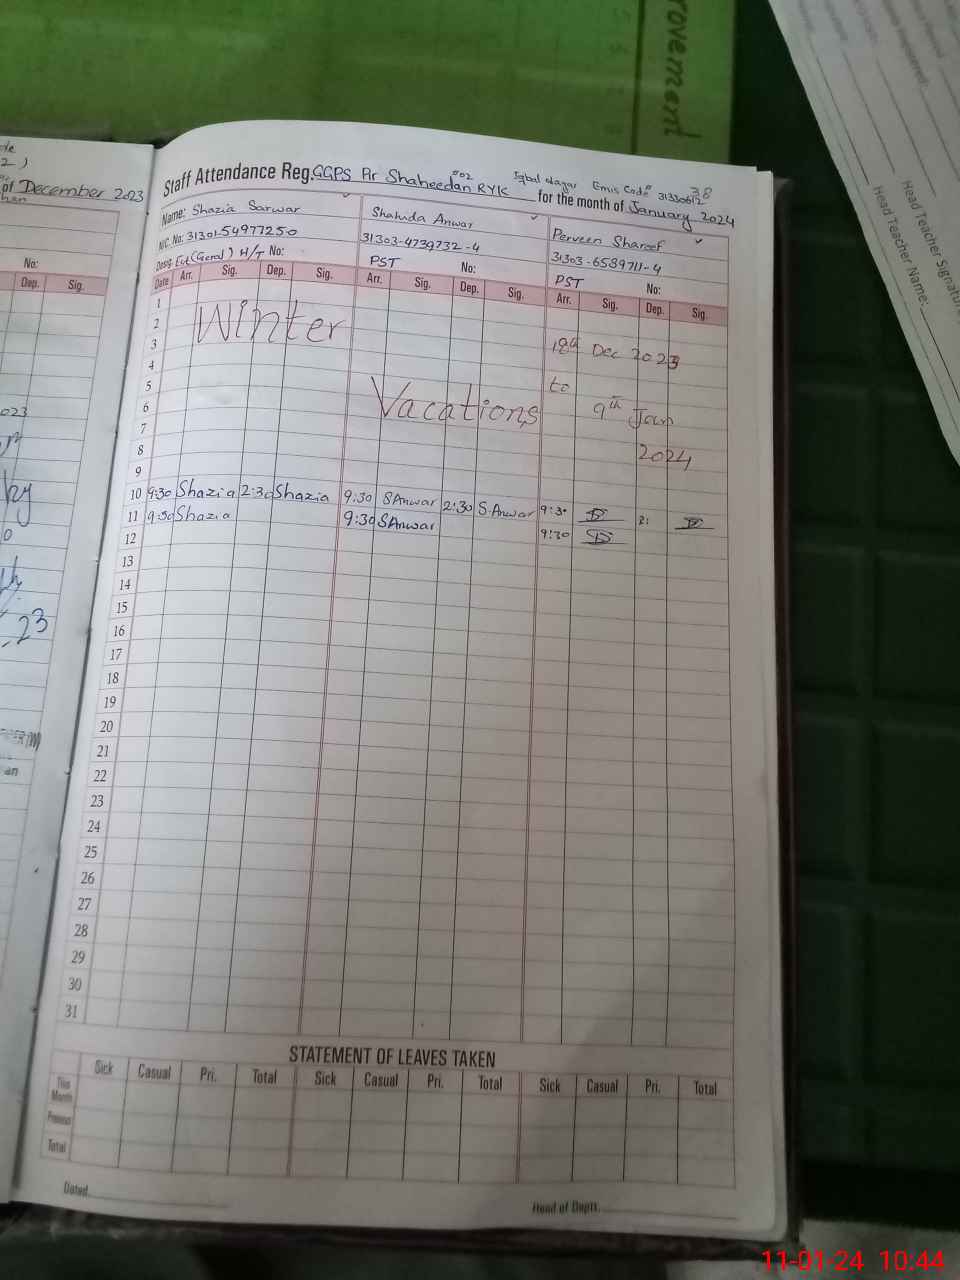 rovement
Head Teacher Signature
Head Teacher Name:
of December 2023
No:
Dep. Sig.
023
23
38
Staff Attendance Reg. GGPS Ar Shaheedan RYK #02 Iqbal Nagar Emis Code# 31330612
for the month of January 2024
Name: Shazia Sarwar Shahida Anwar Perveen Shareef
N/C. No: 3130154977250 31303-4739732-4 31303-6589711-4
Desig. Est(Geral) H/T No: PST No: PST No:
Date Arr. Sig. Dep. Sig. Arr. Sig. Dep. Sig. Arr. Sig. Dep. Sig.
1
2 Winter
3 18th Dec 2023
4
5 Vacations to
6 9th Jan
7
8 2024
9
10 9:30 Shazia 2:30 Shazia 9:30 SAnwar 2:30 S.Anwar 9:30 2:
11 9:30 Shazia 9:30 SAnwar 9:30
12
13
14
15
16
17
18
19
20
21
22
23
24
25
26
27
28
29
30
31
STATEMENT OF LEAVES TAKEN
Sick Casual Pri. Total Sick Casual Pri. Total Sick Casual Pri. Total
This Month
Previous
Total
Dated
Head of Deptt.
11-01-24 10:44